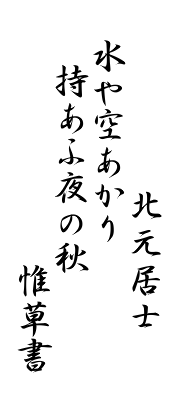 北元居士
水や空あかり
持あふ夜の秋
惟草書